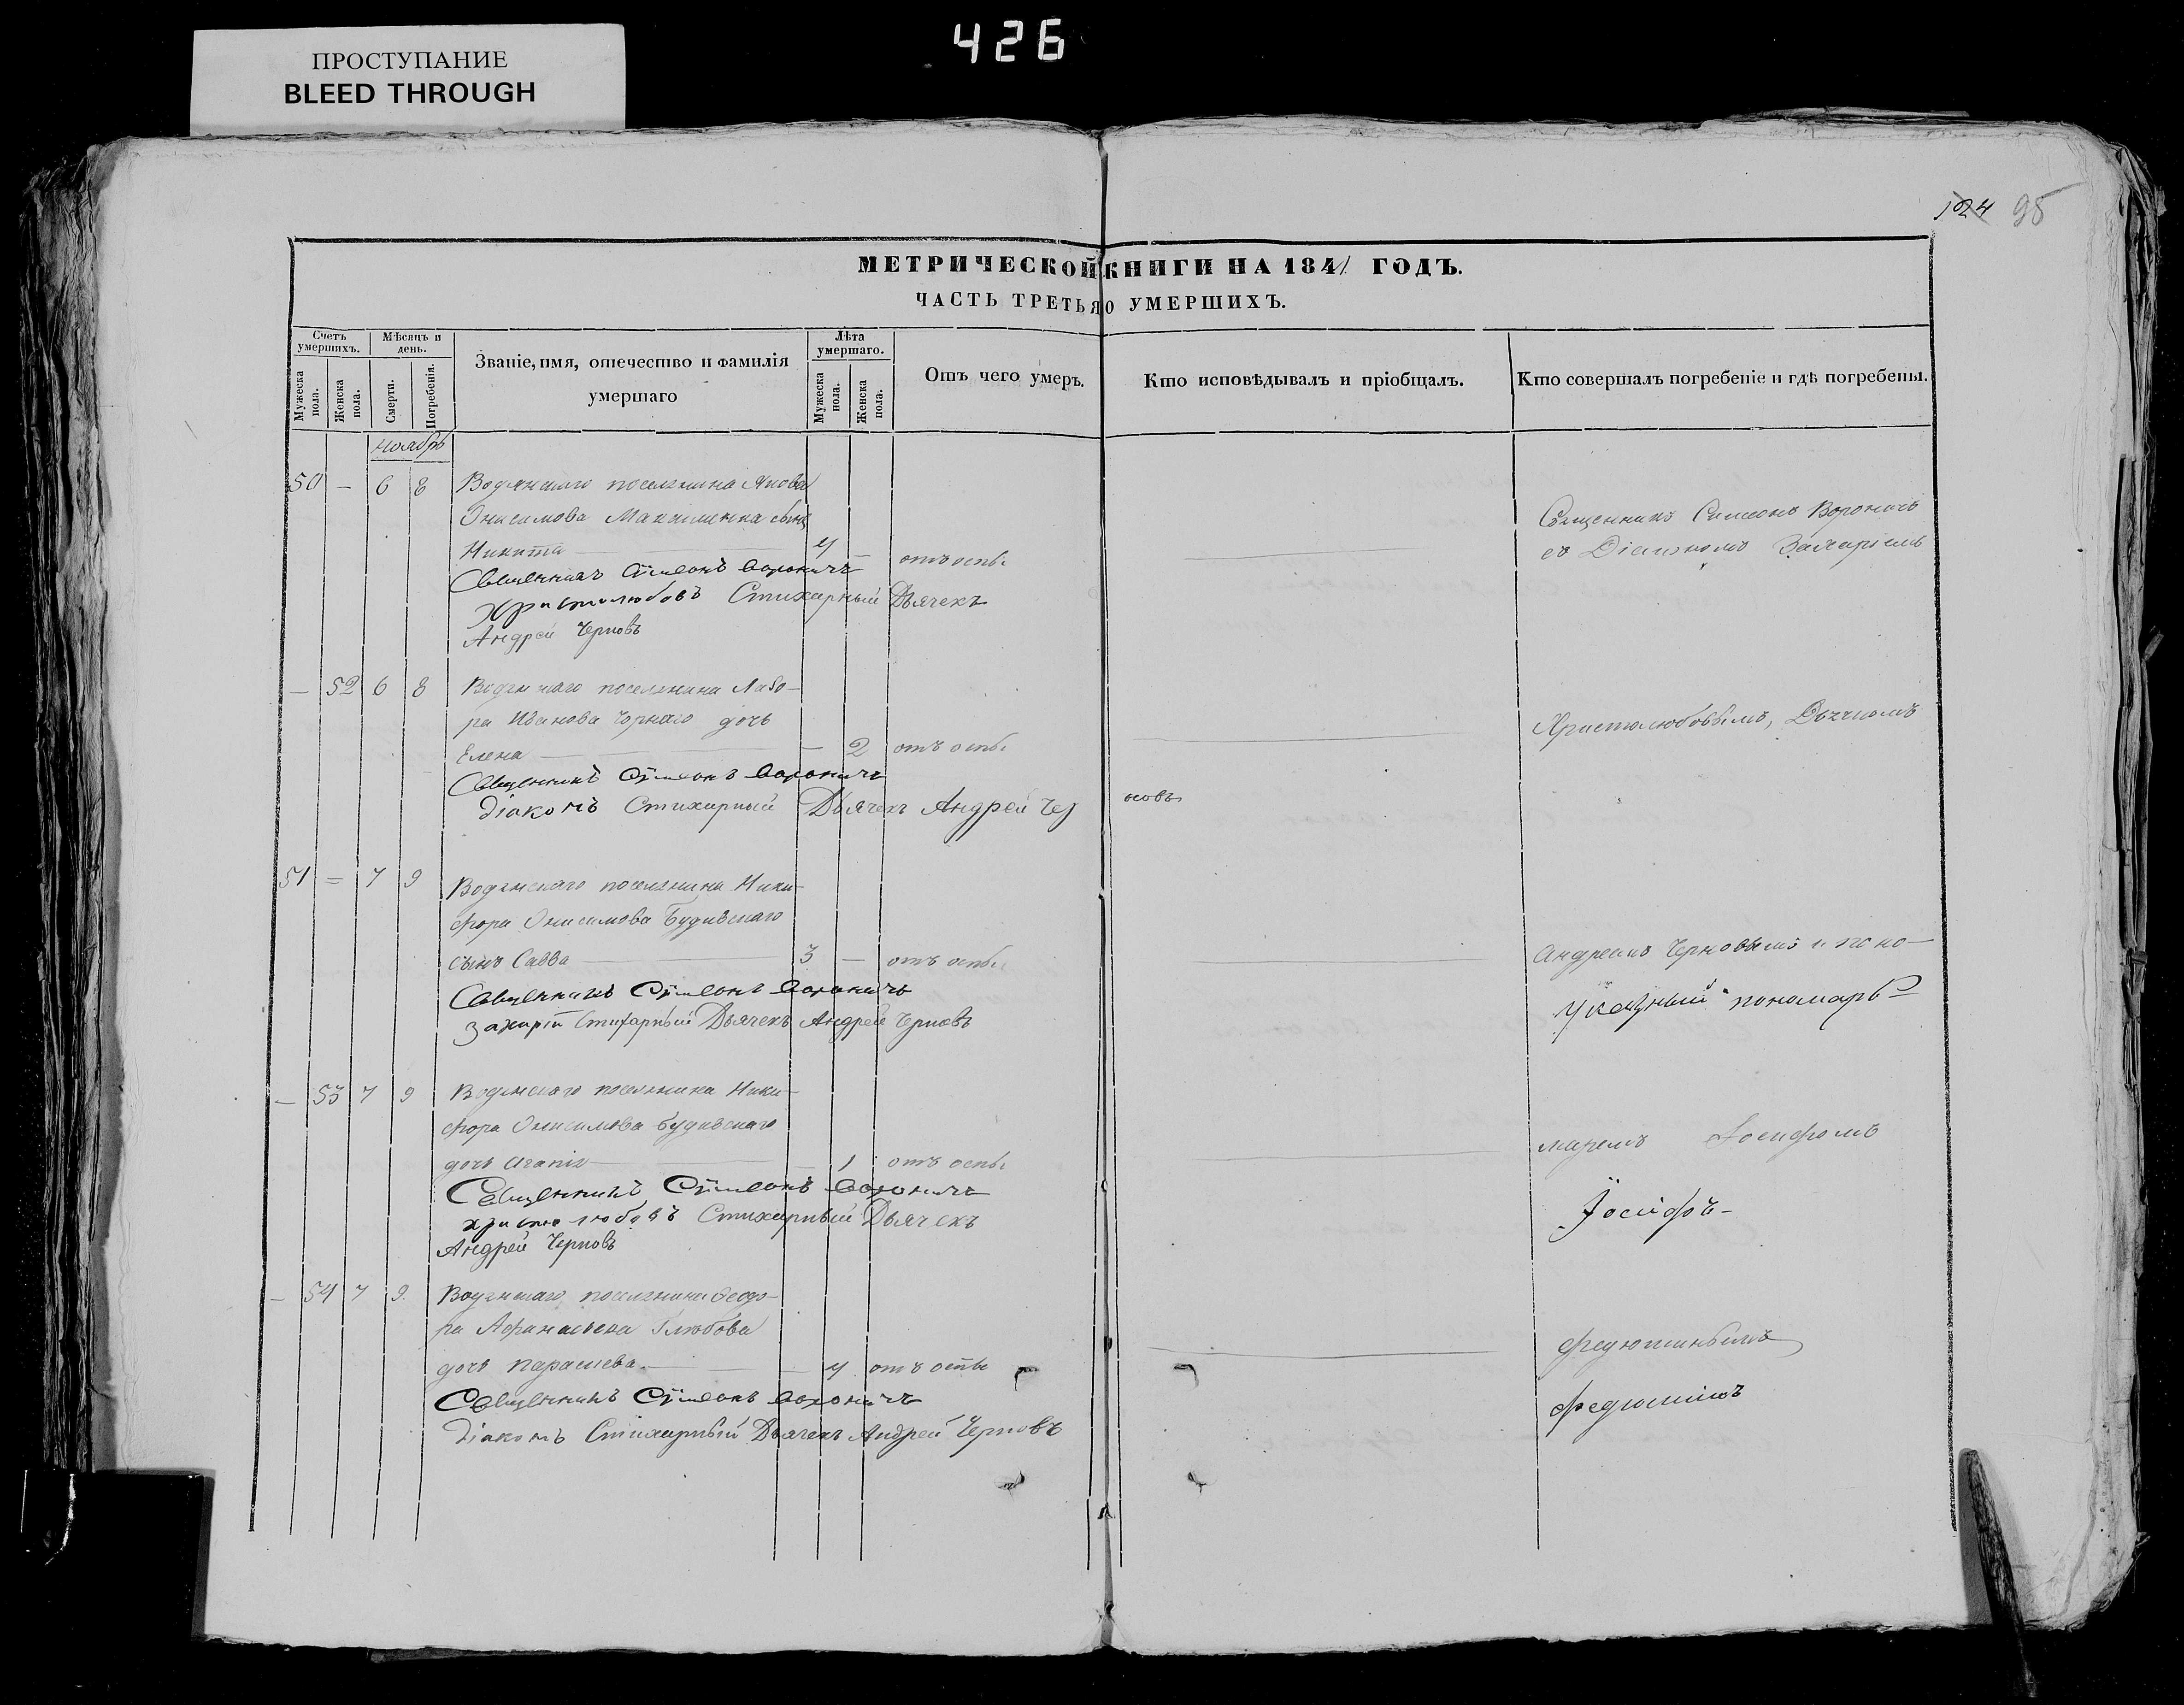 ПРОСТУПАНИЕ
BLEED THROUGH
426
124 95
МЕТРИЧЕСКОЙ КНИГИ НА 1841 ГОДЪ.
ЧАСТЬ ТРЕТЬЯ О УМЕРШИХЪ.
Счетъ умершихъ.
Мужеска пола.
Женска пола.
Мѣсяцъ и день.
Смерти.
Погребенія.
Званіе, имя, отечество и фамилія умершаго
Лѣта умершаго.
Мужеска пола.
Женска пола.
Отъ чего умеръ.
Кто исповѣдывалъ и пріобщалъ.
Кто совершалъ погребеніе и гдѣ погребены.
Ноябрь
50 — 6 8 Водянского поселянина Якова
Онисимова сынъ
Никита 4 — отъ оспы
Священникъ Сѵмеонъ Вороничъ
Христолюбовъ Стихарный Дьячекъ
Андрей Черновъ
Священникъ Симеонъ Вороничъ
съ Діакономъ Захаріемъ
— 52 6 8 поселянина Лаво-
ра Иванова Чорнаго дочь
Елена — 2 отъ оспы
Священникъ Сѵмеонъ Вороничъ
Діаконъ Стихарный Дьячекъ Андрей Черновъ
Христолюбовымъ, Дьячкомъ
51 = 7 9 Водянскаго поселянина Ники-
фора Онисимова Будивскаго
сынъ Савва 3 — отъ оспы
Священникъ Сѵмеонъ Вороничъ
Захарій Стихарный Дьячекъ Андрей Черновъ
Андреемъ Черновымъ и поно-
Указный пономарь
— 53 7 9 Водянскаго поселянина Ники-
фора Онисимова Будивскаго
дочь Агапія — 1 отъ оспы
Священникъ Сѵмеонъ Вороничъ
Христолюбовъ Стихарный Дьячекъ
Андрей Черновъ
маремъ Іосифомъ
Іосифъ
— 54 7 9. Водянскаго поселянина Феодо-
ра Афанасьева
дочь Параскева — 4 отъ оспы
Священникъ Сѵмеонъ Вороничъ
Діаконъ Стихарный Дьячекъ Андрей Черновъ
Федюшинымъ
Федюшинъ